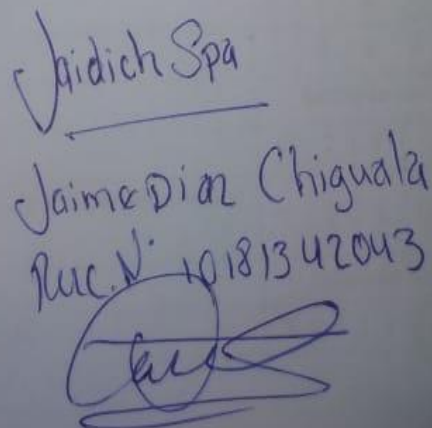 Jaidich Spa
Jaime Diaz Chiguala
Ruc. N° 10181342043